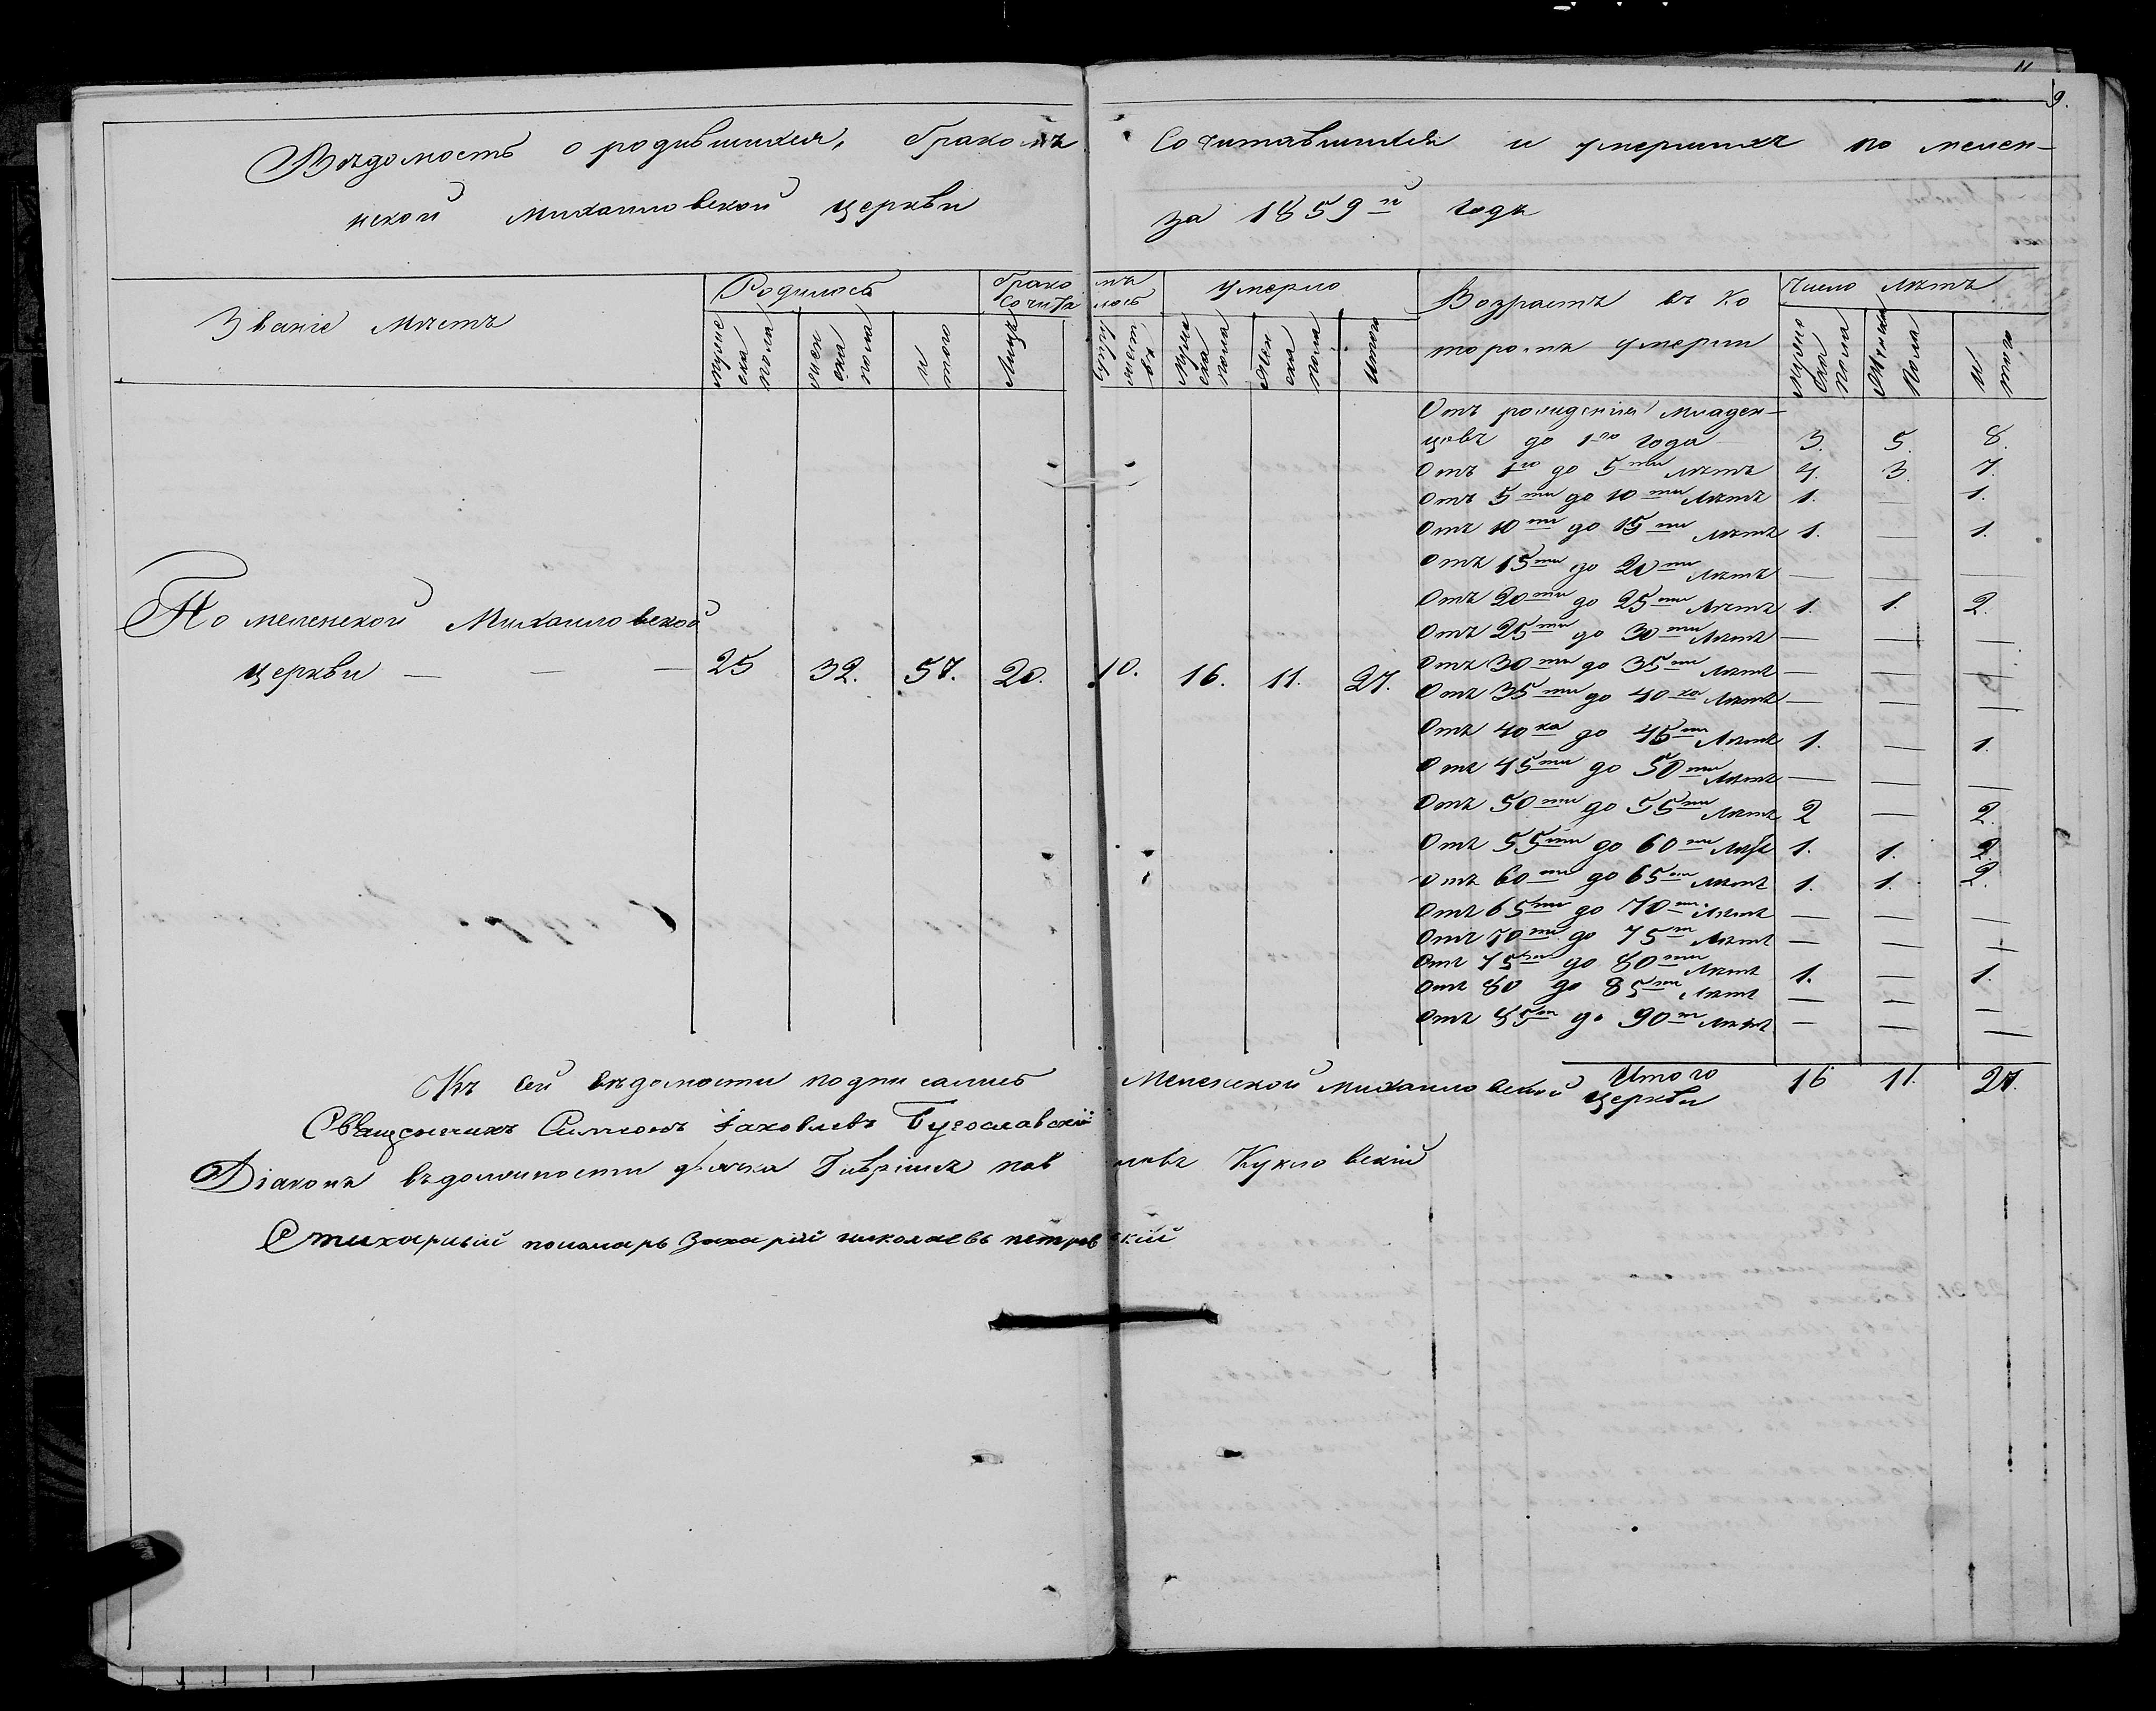 9.
Вѣдомость о родившихся, бракомъ Сочитавшихся и умершихъ по мелен-
ской Михаиловской церкви за 1859й годъ
Званіе Мѣстъ | Родилось | Бракомъ Сочиталось | Умерло | Возрастъ въ ко | Число Лѣтъ
муже ска пола | жен ска пола | и того | Лицъ | супру жеств | Муже ска пола | Жен ска пола | Итого | торомъ умерли | Муже ска пола | Женска Пола | И того
Отъ рожденія младен-
цовъ до 1го года 3. 5. 8.
Отъ 1го до 5ти лѣтъ 4. 3. 7.
Отъ 5ти до 10ти Лѣтъ 1. — 1.
Отъ 10ти до 15ти Лѣтъ 1. — 1.
Отъ 15ти до 20ти Лѣтъ — — —
Отъ 20ти до 25ти Лѣтъ 1. 1. 2.
Отъ 25ти до 30ти Лѣтъ — — —
Отъ 30ти до 35ти Лѣтъ — — —
Отъ 35ти до 40ка Лѣтъ — — —
Отъ 40ка до 45ти Лѣтъ 1. — 1.
Отъ 45ти до 50ти Лѣтъ — — —
Отъ 50ти до 55ти Лѣтъ 2 — 2.
Отъ 55ти до 60ти Лѣтъ 1. 1. 2.
Отъ 60ти до 65ти Лѣтъ 1. 1. 2.
Отъ 65ти до 70ти Лѣтъ — — —
Отъ 70ти до 75ти Лѣтъ — — —
Отъ 75ти до 80ти Лѣтъ 1. — 1.
Отъ 80 до 85ти Лѣтъ — — —
Отъ 85ти до 90ти Лѣтъ — — —
По меленской Михаиловской
церкви — — — 25 32. 57. 20. 10. 16. 11. 27.
Итого 16 11. 27.
Къ сей вѣдомости подписались Меленской Михаиловской церкви
Священникъ Симеонъ Іаковлевъ Богославскій
Діаконъ въ должности дьячка Гавріилъ Кукловскій
Стихарный пономарь Захарій николаевъ петровскій